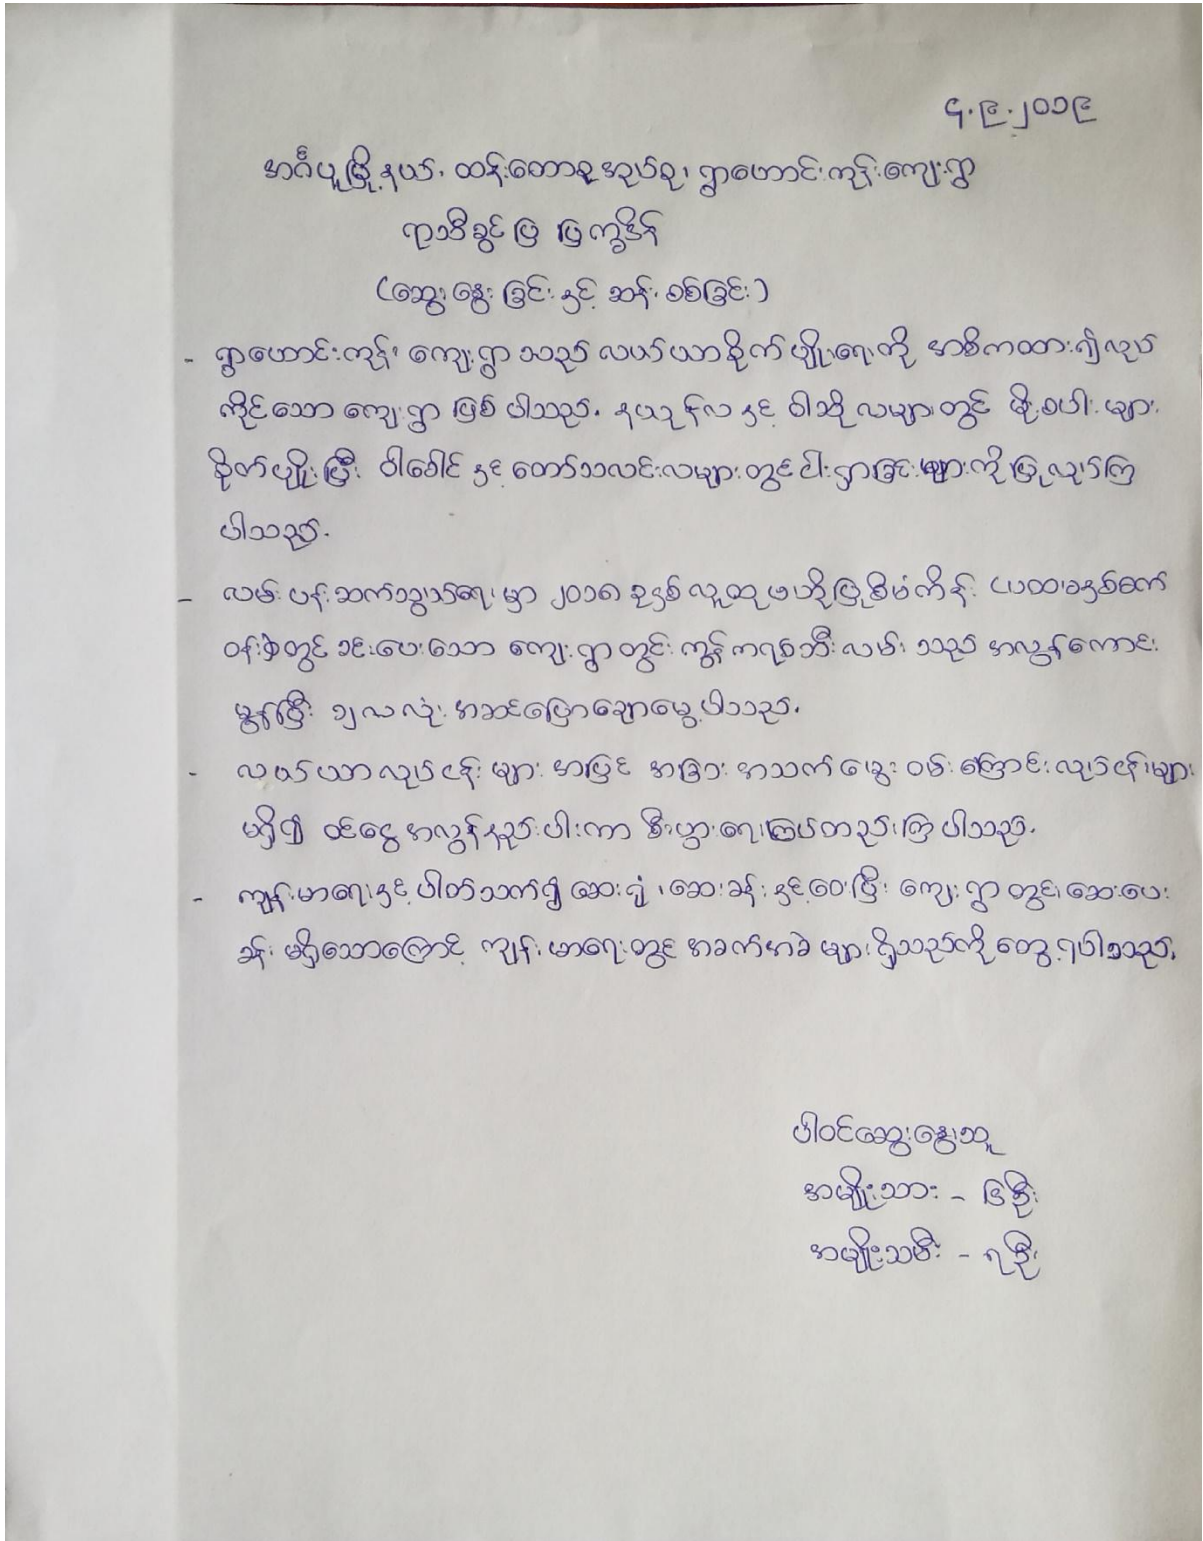 ၄.၉.၂၀၁၉
အင်္ဂပူမြို့နယ်၊ ထန်းတောစုအုပ်စု၊ ရွာဟောင်းကုန်းကျေးရွာ
ရာသီခွင်ပြ ပြက္ခဒိန်
(ဆွေးနွေးခြင်းနှင့် ဆန်းစစ်ခြင်း)
- ရွာဟောင်းကုန်း ကျေးရွာသည် လယ်ယာစိုက်ပျိုးရေးကို အဓိကထား၍လုပ်
ကိုင်သော ကျေးရွာ ဖြစ်ပါသည်. နယုန်လနှင့် ဝါဆိုလများတွင် မိုးစပါးများ
စိုက်ပျိုးပြီး ဝါခေါင်နှင့်တော်သလင်းလများတွင်ငါးရှာခြင်းများကိုပြုလုပ်ကြ
ပါသည်.
- လမ်းပန်းဆက်သွယ်ရေးမှာ ၂၀၁၈ ခုနှစ်လူထုဗဟိုပြုစီမံကိန်း ပထမနှစ်စက်
ဝန်းတွင် ခင်းပေးသော ကျေးရွာတွင်း ကွန်ကရစ်ဘီးလမ်း သည် အလွန်ကောင်း
မွန်ပြီး ၁၂လလုံး အဆင်ပြေချောမွေ့ပါသည်.
- လယ်ယာလုပ်ငန်းများ အပြင် အခြား အသက်မွေးဝမ်းကြောင်းလုပ်ငန်းများ
မရှိ၍ ဝင်ငွေအလွန်နည်းပါးကာ စီးပွားရေးကြပ်တည်းကြပါသည်.
- ကျန်းမာရေးနှင့်ပါတ်သက်၍ ဆေးရုံ၊ ဆေးခန်းနှင့်ဝေးပြီး ကျေးရွာတွင်းဆေးပေး
ခန်း မရှိသောကြောင့် ကျန်းမာရေးတွင် အခက်အခဲများရှိသည်ကိုတွေ့ရပါသည်.
ပါဝင်ဆွေးနွေးသူ
အမျိုးသား - ၆ဦး
အမျိုးသမီး - ၇ဦး